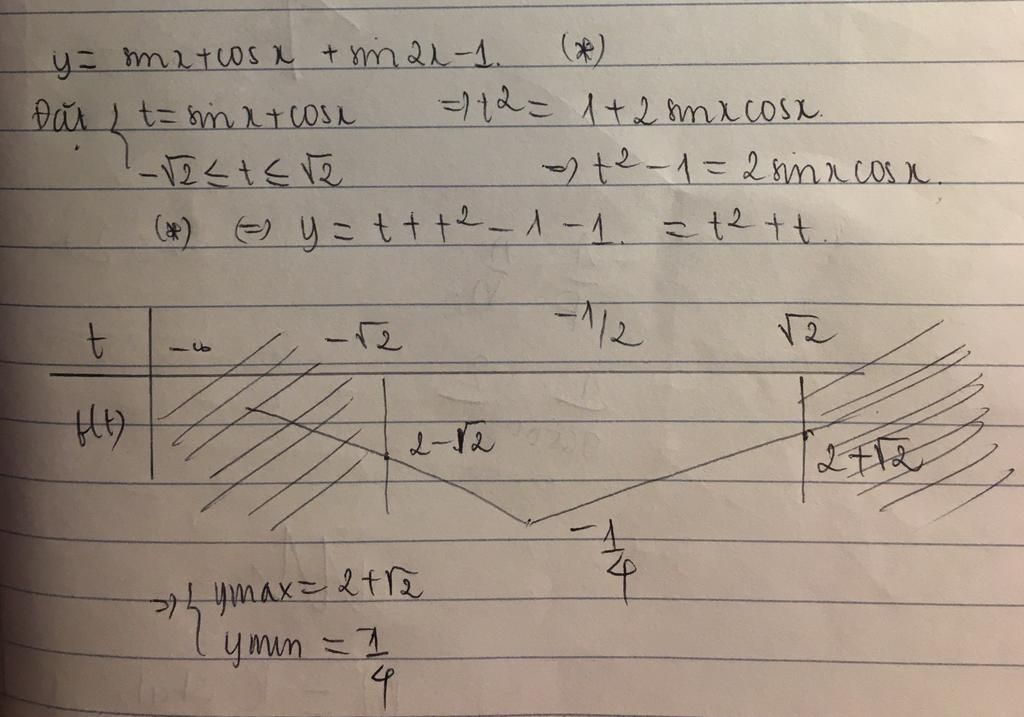 y = sinx + cosx + sin2x - 1. (*)
Đặt { t = sinx + cosx => t² = 1 + 2 sinx cosx.
-√2 ≤ t ≤ √2 => t² - 1 = 2 sinx cosx.
(*) <=> y = t + t² - 1 - 1. = t² + t.
t -∞ -√2 -1/2 √2
f(t) 2-√2 2+√2
-1/4
=> { ymax = 2+√2
ymin = 1/4